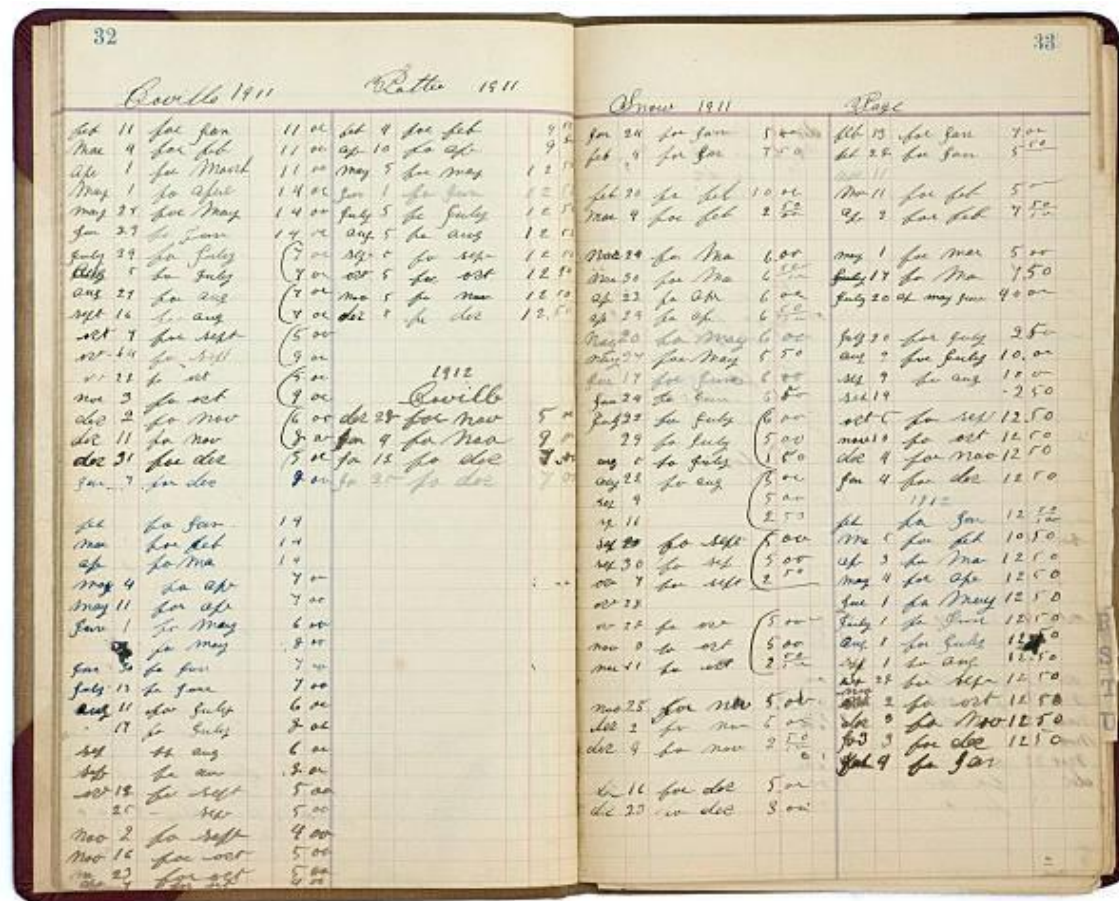 32
Coville 1911
feb 11 for Jan 11 00
Mar 4 for feb 11 00
Apr 1 for March 11 00
May 1 fo april 14 00
may 25 for May 14 00
Jun 29 fo June 14 00
July 29 fo July 7 00
5 fo July 7 00
aug 27 for aug 7 00
sept 16 aug 7 00
oct 7 for sept 5 00
oct 14 fo sept 9 00
oct 28 fo oct 5 00
nov 3 fo oct 9 00
dec 2 fo nov 6 00
dec 11 fo nov 8 00
dec 31 for dec 5 00
Jan 7 for dec 9 00
feb fo Jan 14
mar for feb 14
apr fo Ma 14
may 4 fo ap 7 00
may 11 for ap 7 00
June 1 fo May 6 00
fo may 8 00
Jun 30 fo Jun 7 00
July 13 fo June 7 00
aug 11 for July 6 00
17 fo July 8 00
sep aug 6 00
sep fo 8 00
oct 18 fo sept 5 00
25 - sep 5 00
Nov 2 fo sept 4 00
Nov 16 for oct 5 00
23 for oct 5 00
Pattee 1911
feb 4 for feb 9
ap 10 fo ap 9
may 5 for may 12 50
Jun 1 fo Jun 12 50
July 5 fo July 12 50
aug 5 fo aug 12 50
sep 5 fo sep 12 50
oct 5 for oct 12 50
nov 5 fo nov 12 50
dec 8 fo dec 12.50
1912
Coville
dec 28 for nov 5 00
Jan 9 fo Nov 9
Ja 13 fo dec 7.00
Ja 25 fo dec 7 00
33
Snow 1911
Jan 24 for Jan 5 00
feb 4 for Jan 7 50
feb 20 fo feb 10 00
Mar 9 for feb 2 50
Mar 24 for Ma 6.00
Mar 30 for Ma 6 50
ap 23 fo apr 6 00
ap 29 fo ap 6 50
May 20 fo May 6 00
may 27 for May 5 50
Jun 17 for June 6 00
Jun 24 fo June 6 50
July 22 fo July 6 00
29 fo July 5 00
aug 5 fo July 1 50
aug 28 fo aug 5 00
sep 9 5 00
sep 16 2 50
sep 23 fo sept 5 00
sep 30 fo sep 5 00
oct 7 for sept 2 50
oct 28
oct 28 fo oct 5 00
nov 8 fo oct 5 00
nov 11 fo oct 2 50
nov 25 for nov 5.00
dec 2 fo nov 5 00
dec 9 fo nov 2 50
dec 16 for dec 5 00
dec 23 dec 3 00
Page
feb 13 for Jan 7 00
feb 28 for Jan 5 50
Mar 11
Mar 11 for feb 5 00
ap 2 for feb 7 50
may 1 for mar 5 00
July 17 fo Ma 7.50
July 20 ap may June 40 00
July 20 for July 2 50
aug 9 for July 10.00
sep 9 fo aug 10 00
Sep 19 2 50
oct 5 fo sep 12.50
nov 10 fo oct 12 50
dec 4 for nov 12 50
Jan 4 for dec 12 50
1912
feb fo Jan 12 50
Ma 5 for feb 10 50
ap 3 fo Ma 12 50
may 4 for apr 12 50
June 1 fo May 12 50
July 1 fo June 12 50
Aug 1 for July 12 50
sep 1 fo aug 12.50
sep 28 for sep 12 50
nov 2 fo oct 12 50
dec 3 fo Nov 12 50
Ja 3 for dec 12 50
feb 4 fo Jan